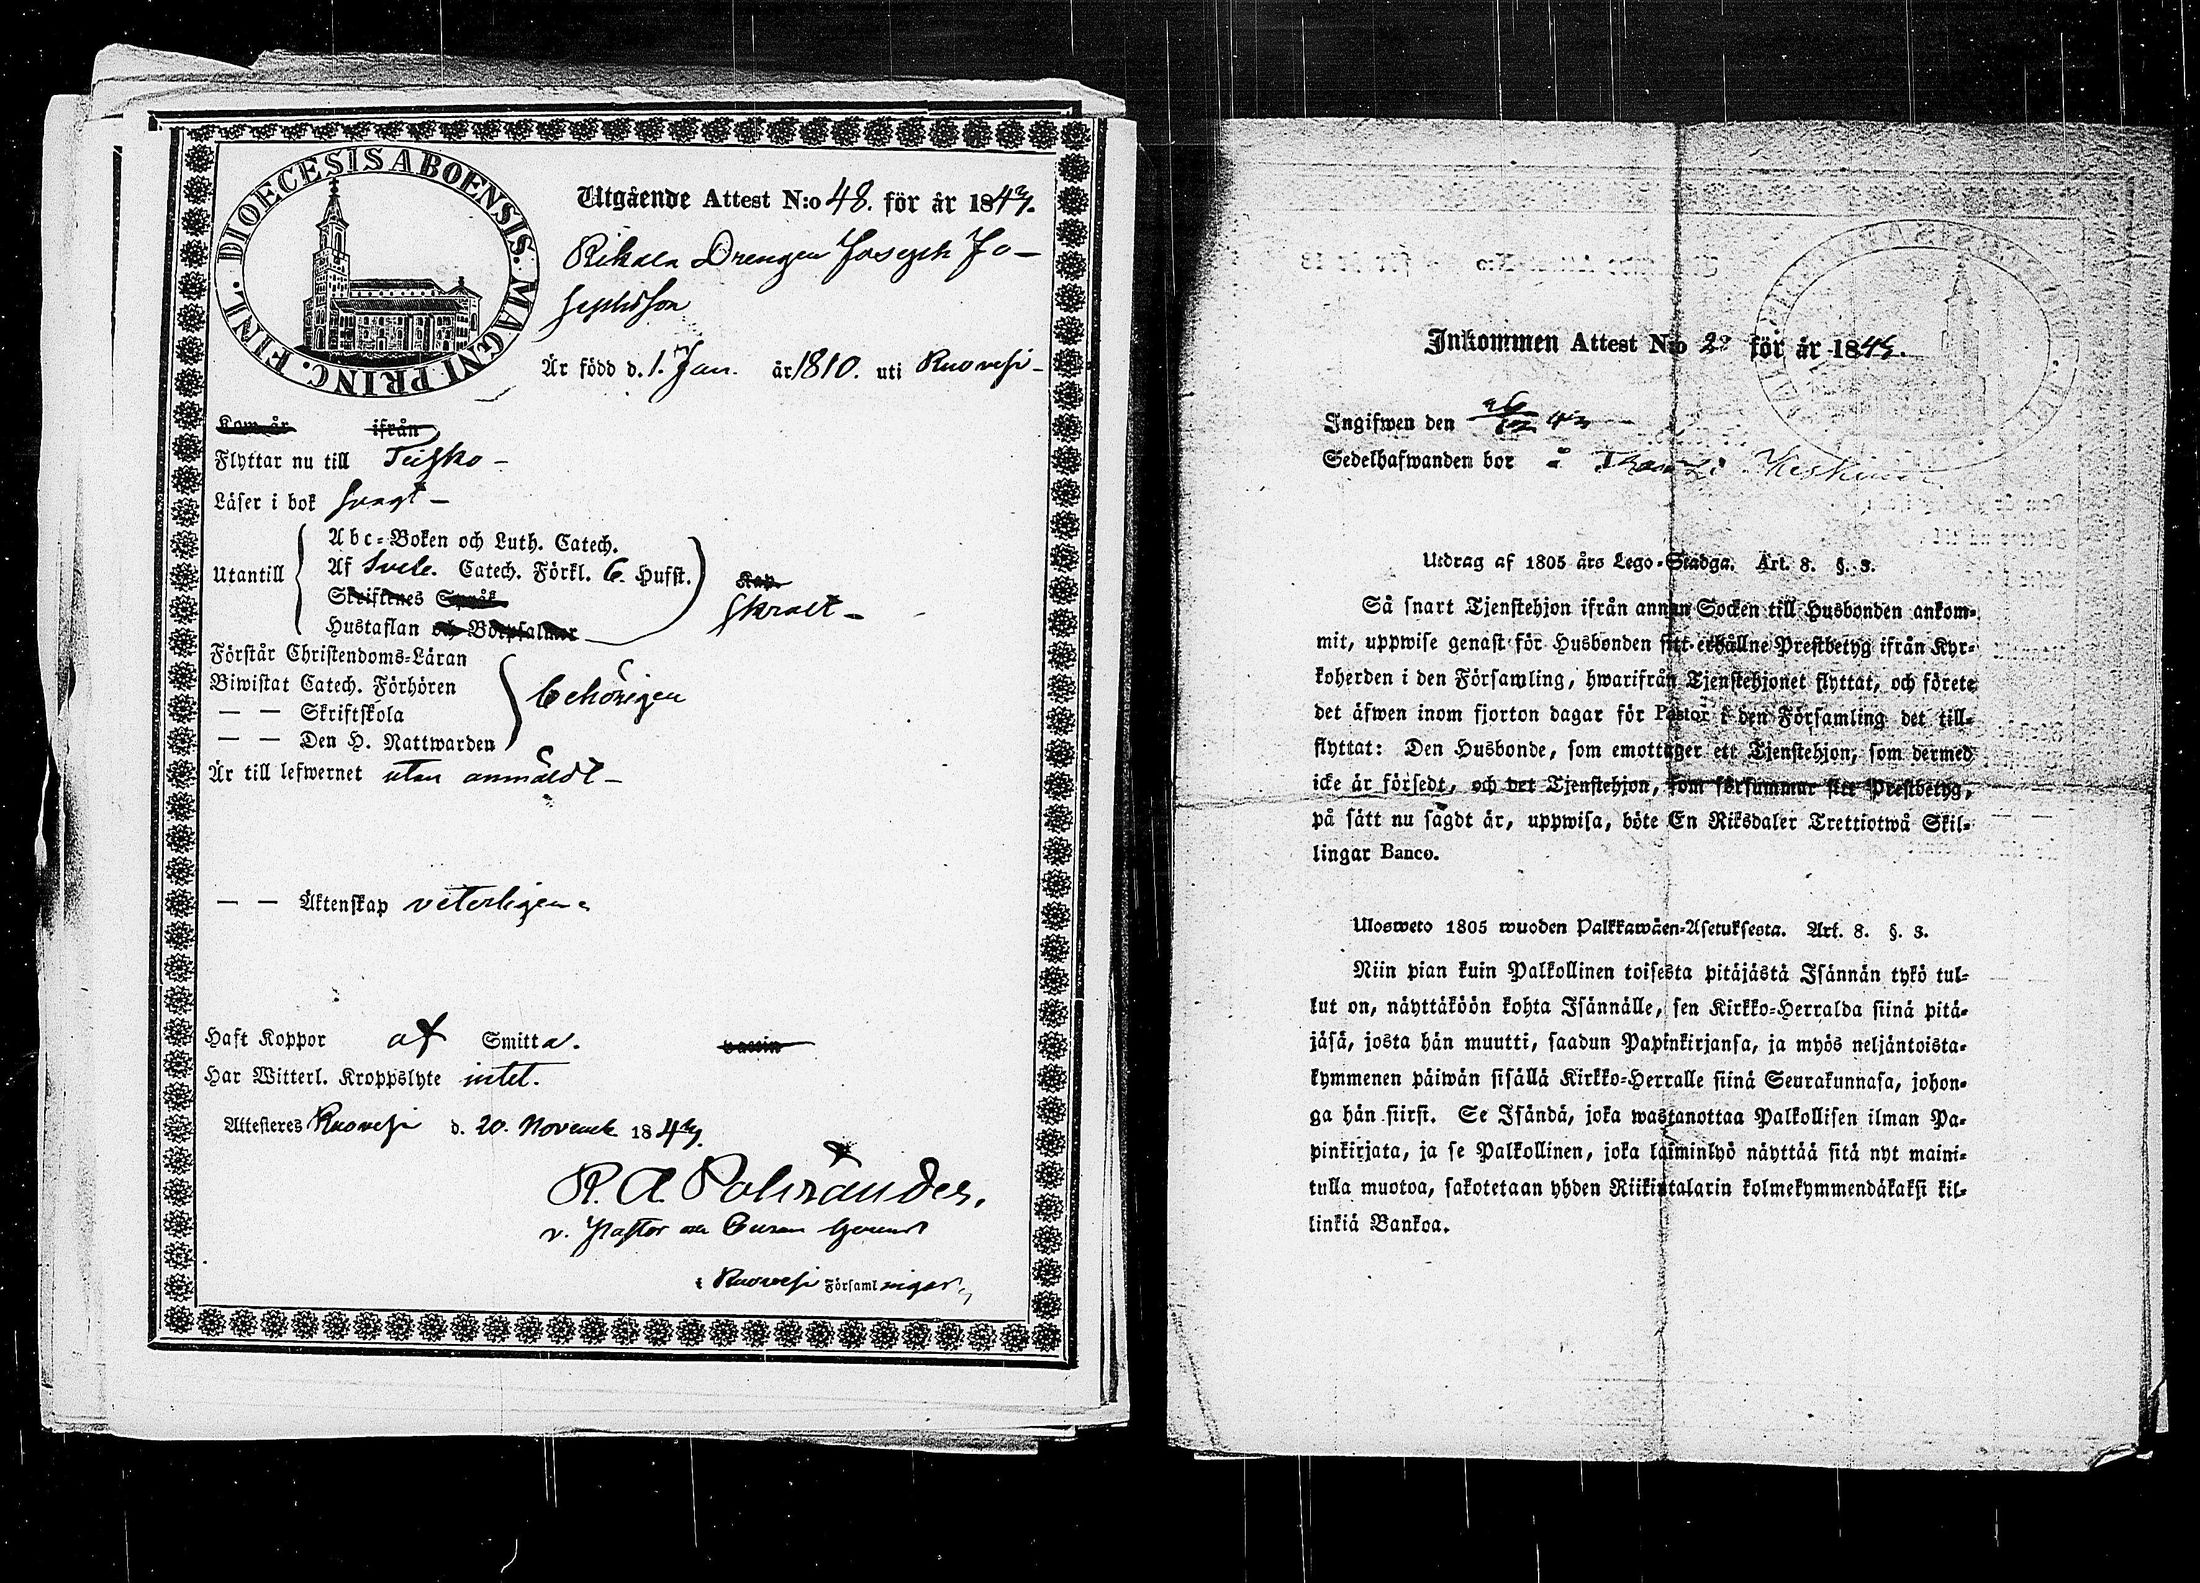 DIOECESIS ABOENSIS. MAGNI PRINC. FINL.
Utgående Attest N:o 48. för år 1843.
Drengen Joseph Jo-
sephsson
Är född d. 1. Jan. år 1810. uti Ruovesi -
Kom år ifrån
Flyttar nu till Teisko -
Läser i bok svagt -
Utantill
Abc-Boken och Luth. Catech.
Af Sveb. Catech. Förkl. 6. Hufst.
Skriftenes Språk
Hustaflan och Botpsalmer
Kap.
skralt -
Förstår Christendoms-Läran
Biwistat Catech. Förhören
— — Skriftskola
— — Den H. Nattwarden
behörigen
Är till lefwernet utan anmäldt -
— — Äktenskap veterligen
Haft Koppor af Smitta. vaccin
Har Witterl. Kroppslyte intet.
Attesteres Ruovesi d. 20. Novemb 1843.
R. A. Polviander,
v. Pastor
i Ruovesi Församlingar
Inkommen Attest N:o för år 1843.
Ingifwen den 43
Sedelhafwanden bor å
Utdrag af 1805 års Lego-Stadga. Art. 8. §. 3.
Så snart Tjenstehjon ifrån annan Socken till Husbonden ankom-
mit, uppwise genast för Husbonden sitt erhållne Prestbetyg ifrån Kyr-
koherden i den Församling, hwarifrån Tjenstehjonet flyttat, och förete
det äfwen inom fjorton dagar för Pastor i den Församling det till-
flyttat: Den Husbonde, som emottager ett Tjenstehjon, som dermed
icke är försedt, och det Tjenstehjon, som försummar sitt Prestbetyg,
på sätt nu sagdt är, uppwisa, böte En Riksdaler Trettiotwå Skil-
lingar Banco.
Ulosweto 1805 wuoden Palkkawäen-Asetuksesta. Art. 8. §. 3.
Niin pian kuin Palkollinen toisesta pitäjästä Isännän tykö tul-
lut on, näyttäköön kohta Isännälle, sen Kirkko-Herralda siinä pitä-
jäsä, josta hän muutti, saadun Papinkirjansa, ja myös neljäntoista-
kymmenen päiwän sisällä Kirkko-Herralle siinä Seurakunnasa, johon-
ga hän siirsi. Se Isändä, joka wastanottaa Palkollisen ilman Pa-
pinkirjata, ja se Palkollinen, joka laiminlyö näyttää sitä nyt maini-
tulla muotoa, sakotetaan yhden Riikintalarin kolmekymmendäkaksi kil-
linkiä Bankoa.